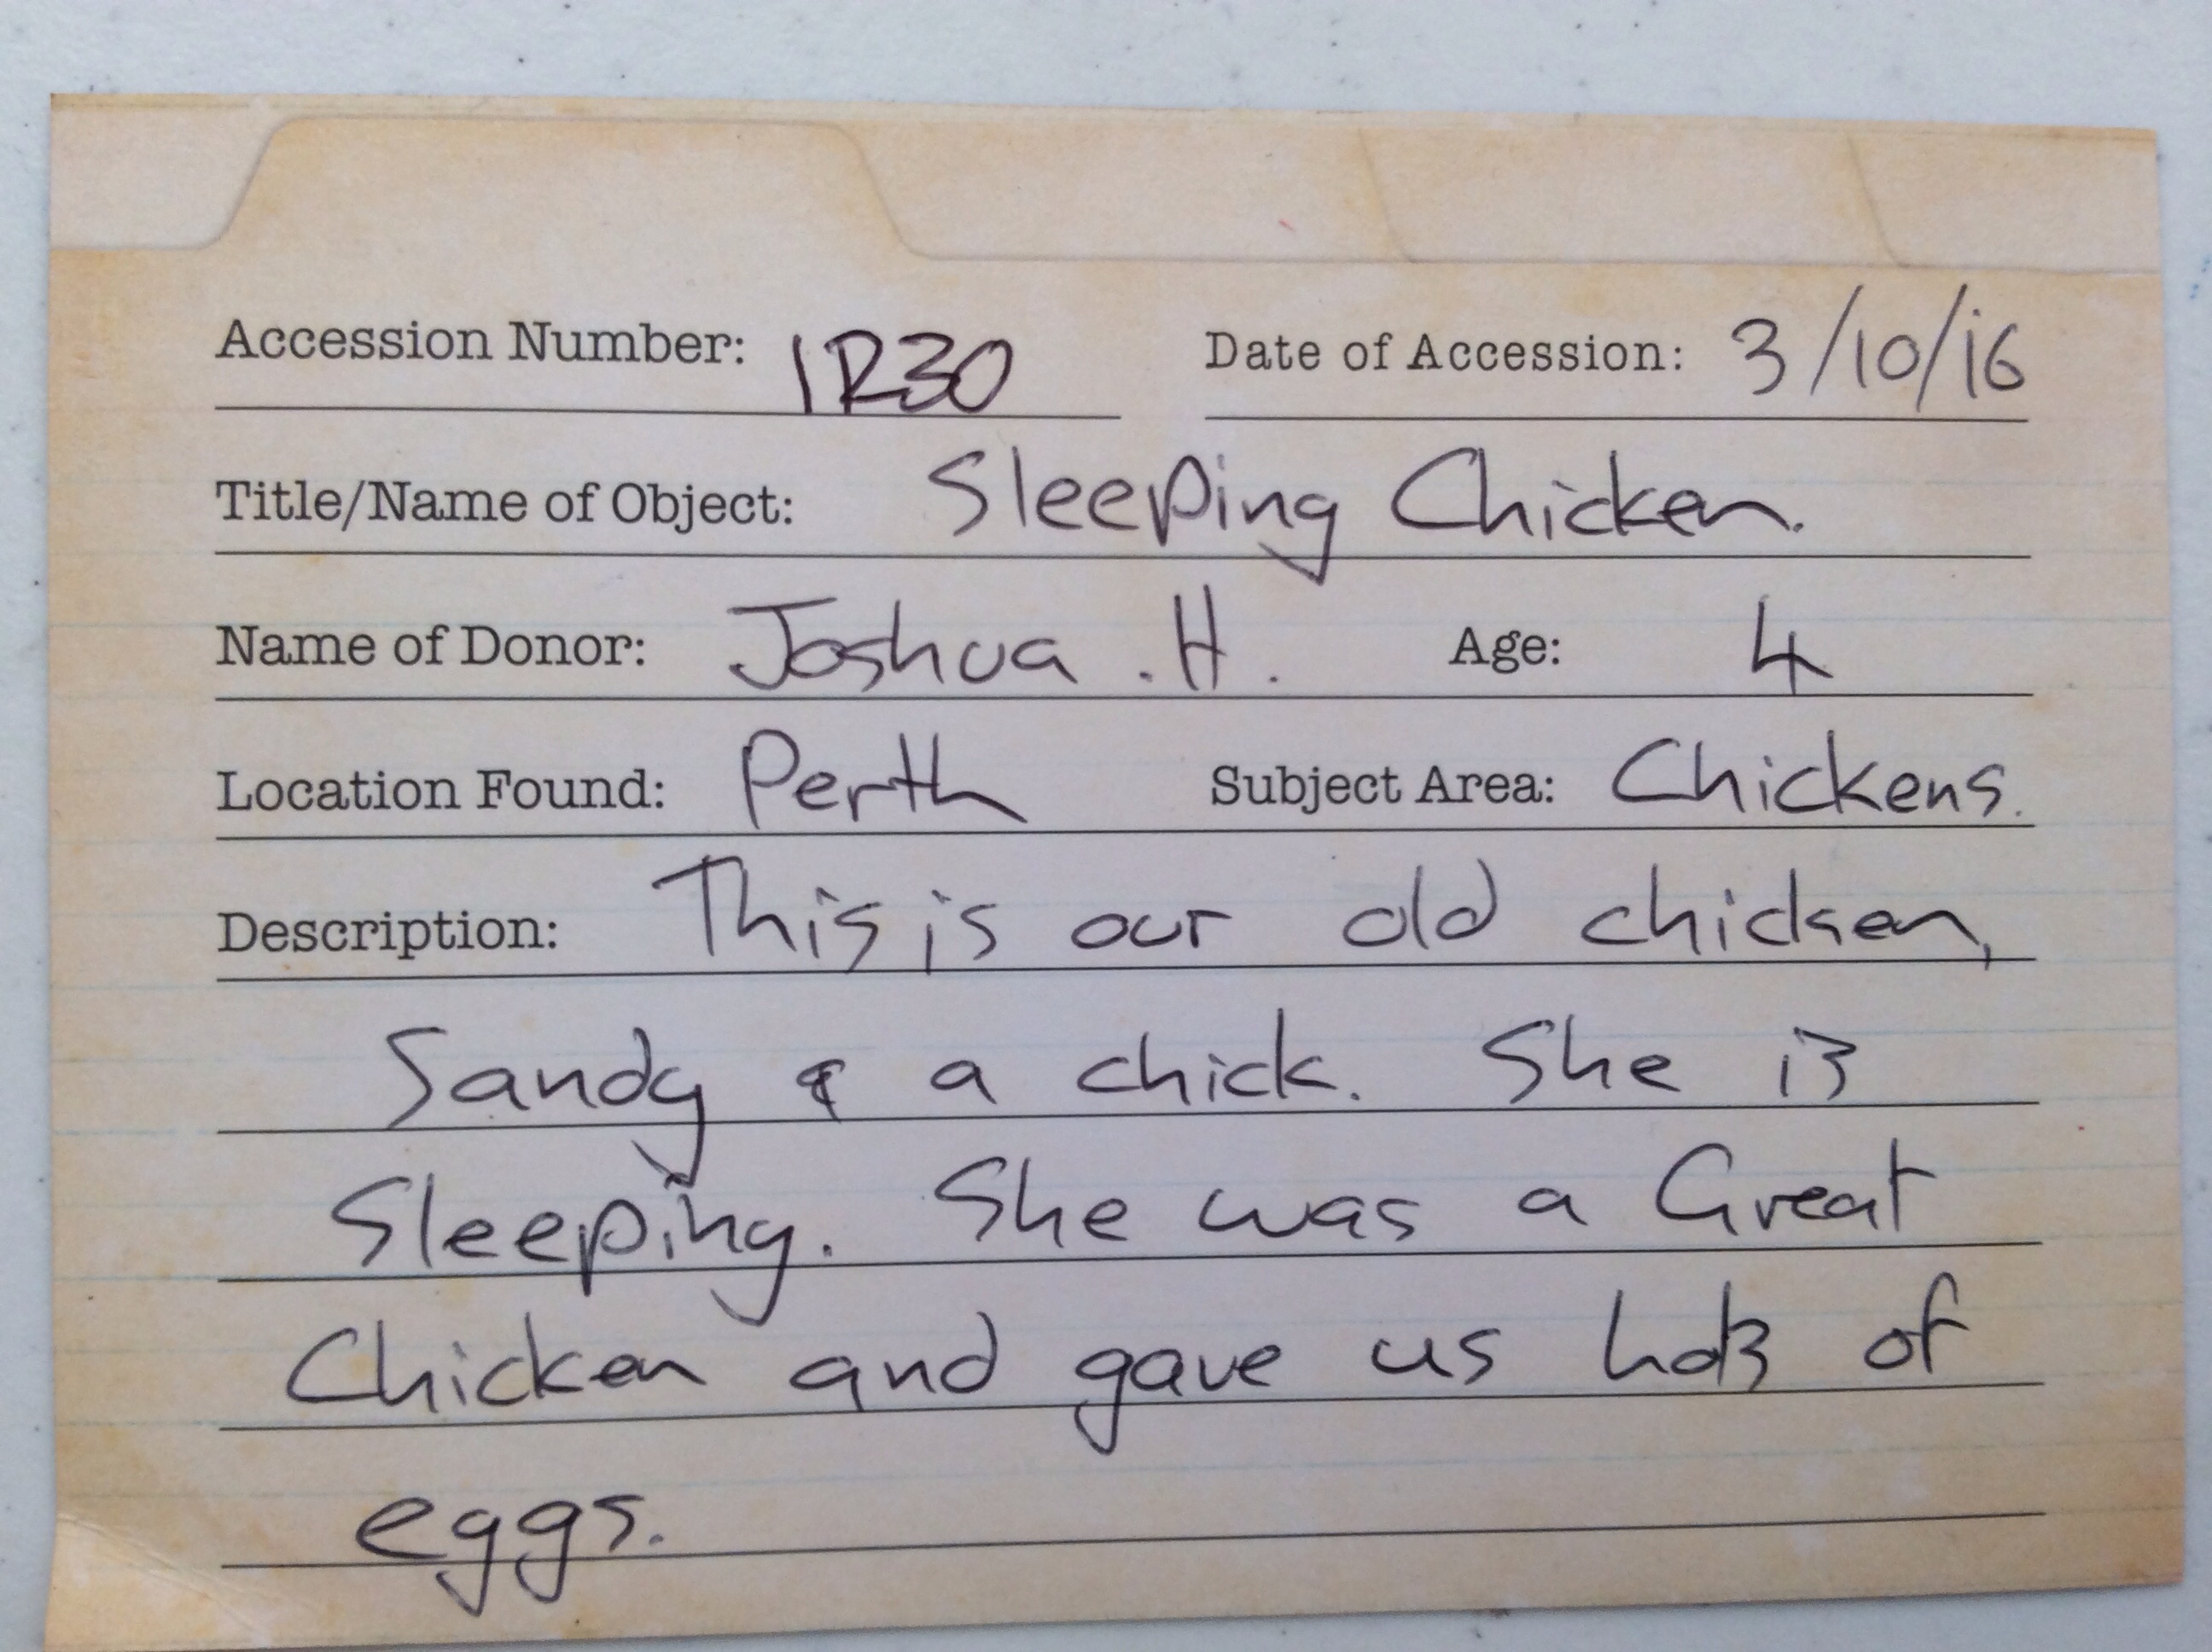 Accession Number: 1R30 Date of Accession: 3/10/16
Title/Name of Object: Sleeping Chicken.
Name of Donor: Joshua .H. Age: 4
Location Found: Perth Subject Area: Chickens.
Description: This is our old chicken,
Sandy & a chick. She is
Sleeping. She was a Great
Chicken and gave us lots of
eggs.